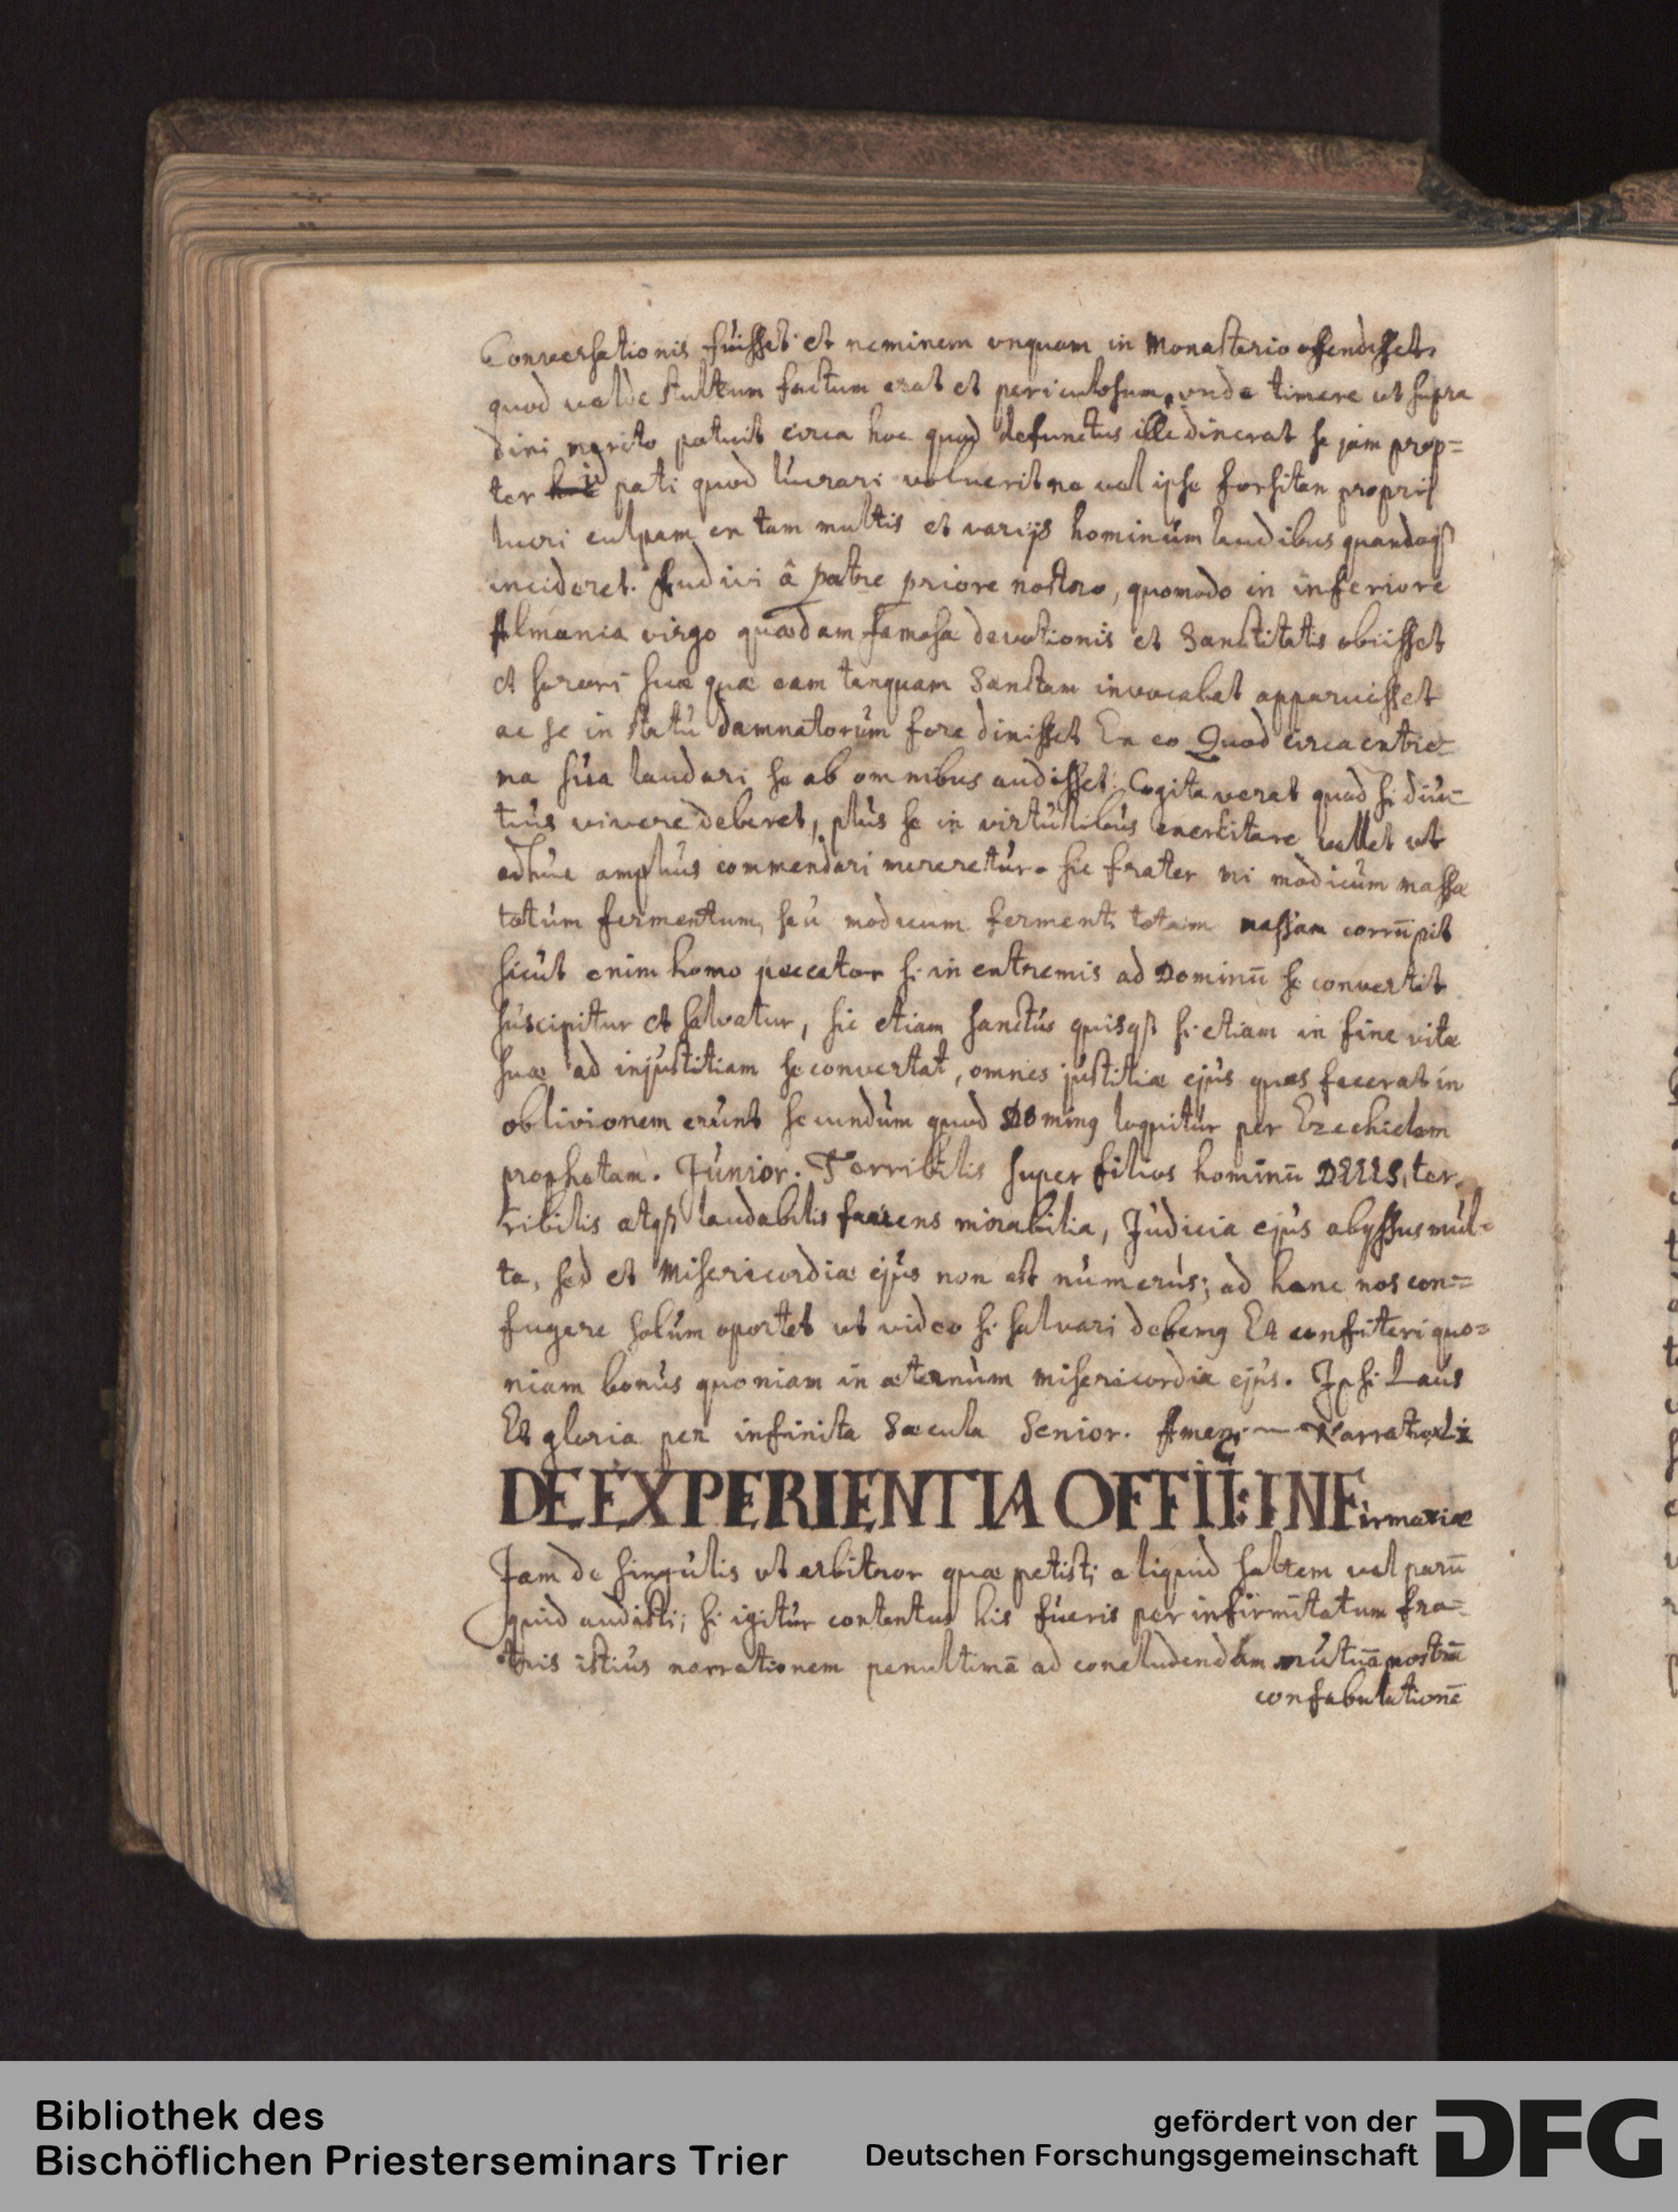 Conversationis fuisset et neminem vnquam in Monasterio offendisset,
quod valde stultum factum erat et periculosum, vnde timere ut supra
dixi merito potuit circa hoc quod defunctus ille dixerat se jam prop=
ter id pati quod lucrari voluerit ne vel ipse forsitan proprij
lucri culpam ex tam multis et varijs hominum laudibus quandoqꝫ
incideret. Audivi â patre priore nostro, quomodo in inferiore
Almania virgo quædam famosæ devotionis et Sanctitatis obiisset
et sorori suæ quæ eam tanquam Sanctam invocabat apparuisset
ac se in statu damnatorum fore dixisset Ex eo Quod circa extre=
ma sua laudari se ab omnibus audisset. Cogitaverat quod si diu=
tius vivere deberet, plus se in virtutibus exercitare vellet ut
adhuc amplius commendari mereretur. Sic frater mi modicum massæ
totum fermentum, seu modicum fermenti totam massam corrūpit
sicut enim homo peccator si in extremis ad Dominū se convertit
suscipitur et salvatur, sic etiam sanctus quisqꝫ si etiam in fine vitæ
suæ ad injustitiam se convertat, omnes justitiæ ejus quas fecerat in
oblivionem erunt secundum quod Dominꝰ loquitur per Ezechielem
prophetam. Junior. Terribilis super filios hominū DEUS, ter=
ribilis atqꝫ laudabilis faciens mirabilia, Judicia ejus abyssus mul=
ta, sed et Misericordiæ ejus non est numerus; ad hanc nos con=
fugere solum oportet ut video si salvari debemꝰ Et confiteri quo=
niam bonus quoniam in æternum misericordia ejus. Ipsi Laus
Et gloria per infinita Sæcula Senior. Amen. Narratio xlix
DE EXPERIENTIA OFFICII: INFirmariæ
Jam de singulis ut arbitror quæ petisti aliquid saltem vel parū
quid audisti; si igitur contentus his fueris per infirmitatum fra=
tris istius narrationem penultimā ad concludendam mutuā nostrā
confabulationē
Bibliothek des
Bischöflichen Priesterseminars Trier
gefördert von der
Deutschen Forschungsgemeinschaft
DFG